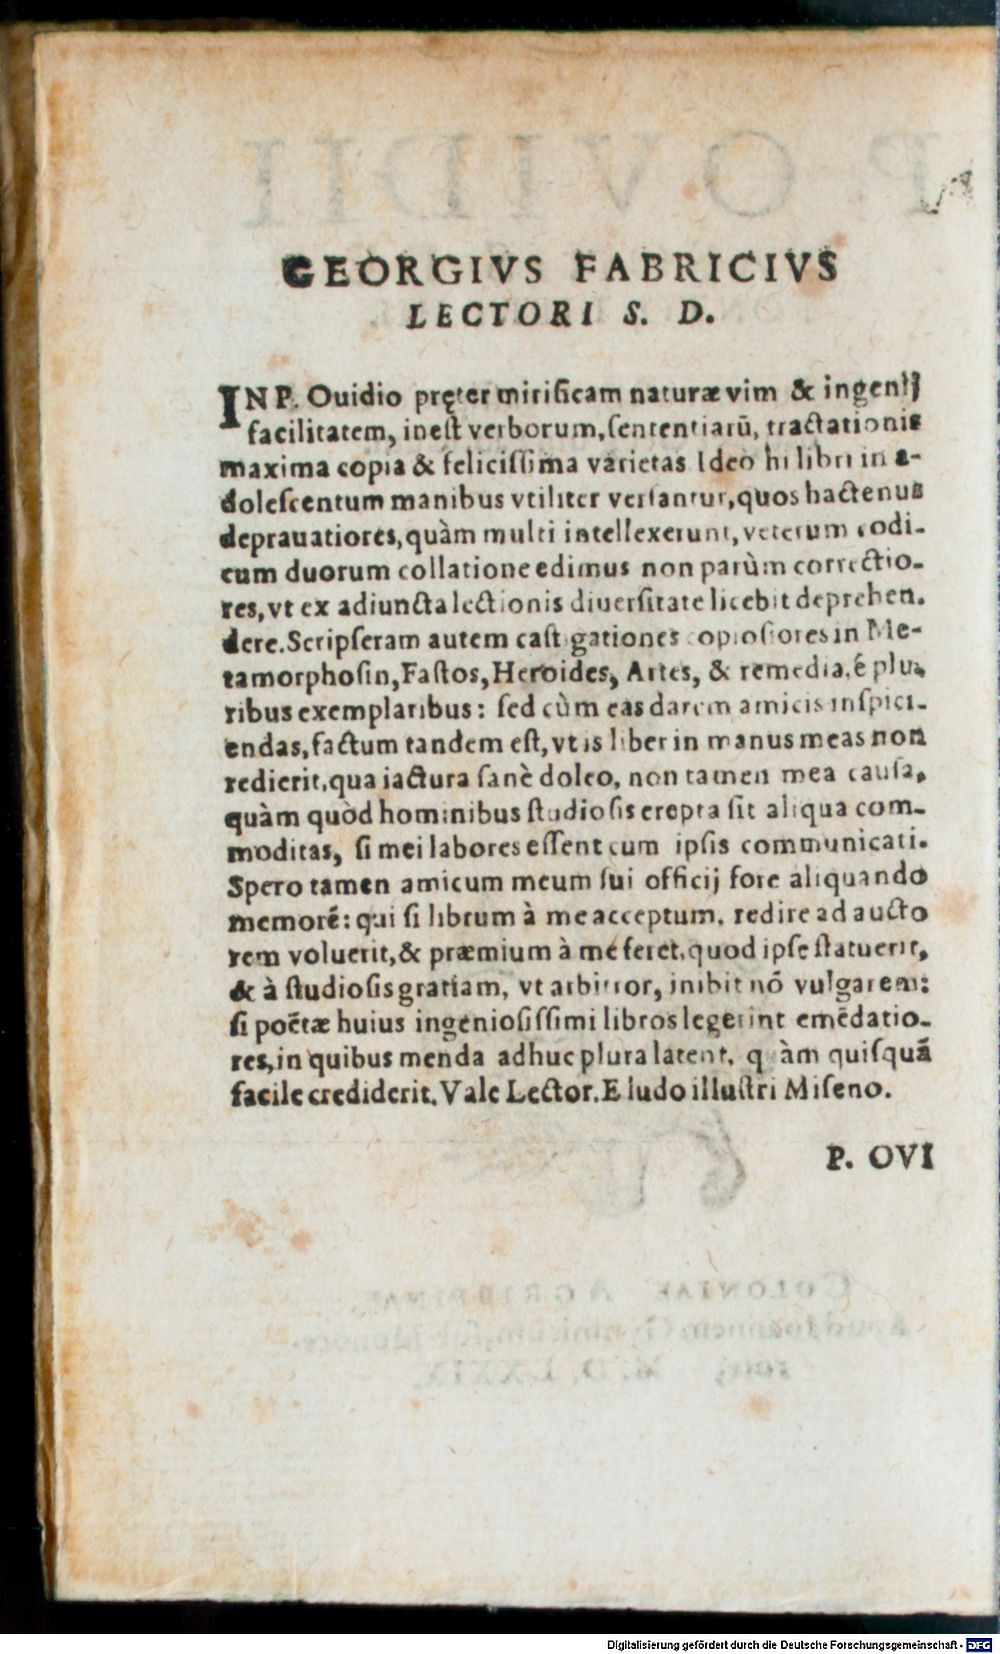 GEORGIVS FABRICIVS
LECTORI S. D.
IN P. Ouidio pręter mirificam naturæ vim & ingenij
facilitatem, inest verborum, sententiarū, tractationis
maxima copia & felicissima varietas Ideo hi libri in a-
dolescentum manibus vtiliter versantur, quos hactenus
deprauatiores, quàm multi intellexerunt, veterum codi-
cum duorum collatione edimus non parùm correctio-
res, vt ex adiuncta lectionis diuersitate licebit deprehen-
dere. Scripseram autem castigationes copiosiores in Me-
tamorphosin, Fastos, Heroides, Artes, & remedia, é plu-
ribus exemplaribus: sed cùm eas darem amicis inspici-
endas, factum tandem est, vt is liber in manus meas non
redierit, qua iactura sanè doleo, non tamen mea causa,
quàm quòd hominibus studiosis erepta sit aliqua com-
moditas, si mei labores essent cum ipsis communicati.
Spero tamen amicum meum sui officij fore aliquando
memorē: qui si librum à me acceptum, redire ad aucto
rem voluerit, & præmium à me feret, quod ipse statuerit,
& à studiosis gratiam, vt arbitror, inibit nō vulgarem:
si poëtæ huius ingeniosissimi libros legerint emēdatio-
res, in quibus menda adhuc plura latent, quàm quisquā
facile crediderit. Vale Lector. E ludo illustri Miseno.
P. OVI
Digitalisierung gefördert durch die Deutsche Forschungsgemeinschaft - DFG